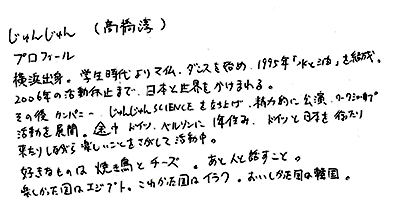 じゅんじゅん (高橋淳)
プロフィール
横浜出身。学生時代よりマイム、ダンスを始め、1995年「水と油」を結成。
2006年の活動休止まで、日本と世界をかけまわる。
その後カンパニーじゅんじゅんSCIENCEを立上げ、精力的に公演、ワークショップ
活動を展開。途中ドイツ、ベルリンに1年住み、ドイツと日本を行ったり
来たりしながら楽しいことをさがして活動中。
好きなものは焼き鳥とチーズ。あと人と話すこと。
楽しかった国はエジプト。こわかった国はイラク。おいしかった国は韓国。